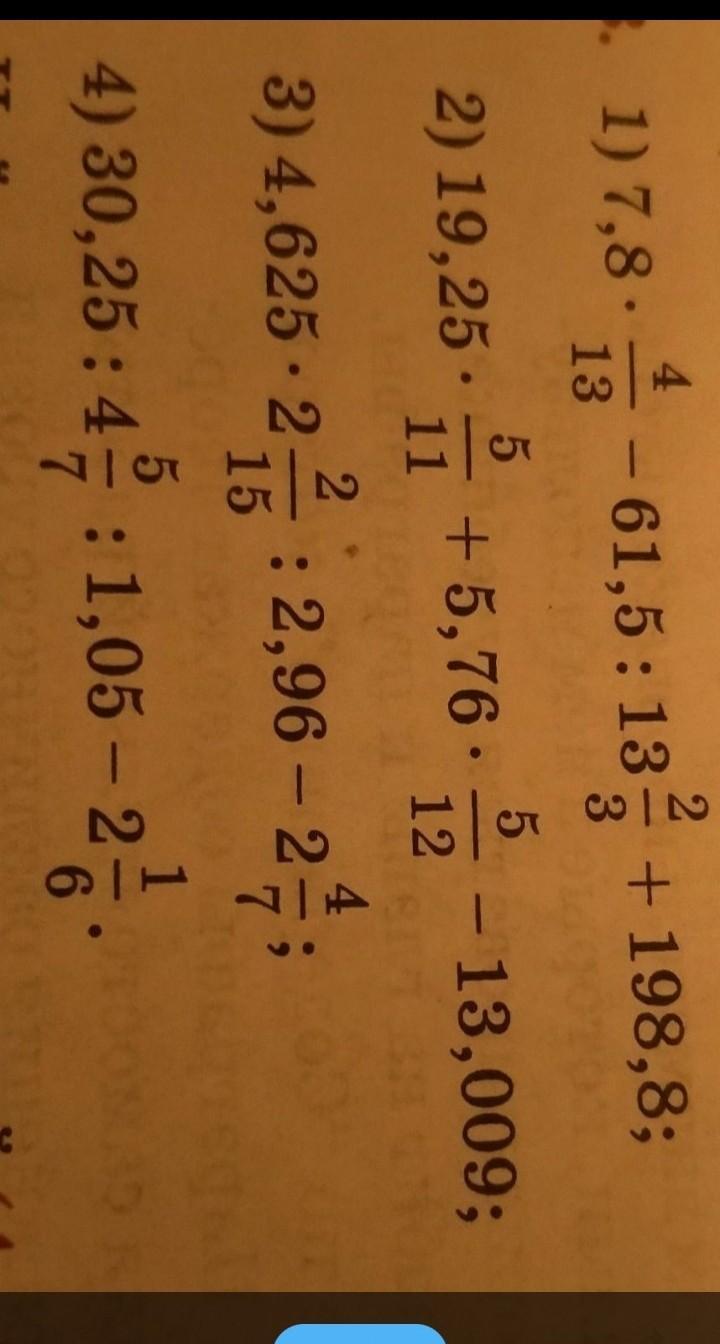 1) 7,8 · 4/13 − 61,5 : 13 2/3 + 198,8;
2) 19,25 · 5/11 + 5,76 · 5/12 − 13,009;
3) 4,625 · 2 2/15 : 2,96 − 2 4/7;
4) 30,25 : 4 5/7 : 1,05 − 2 1/6.